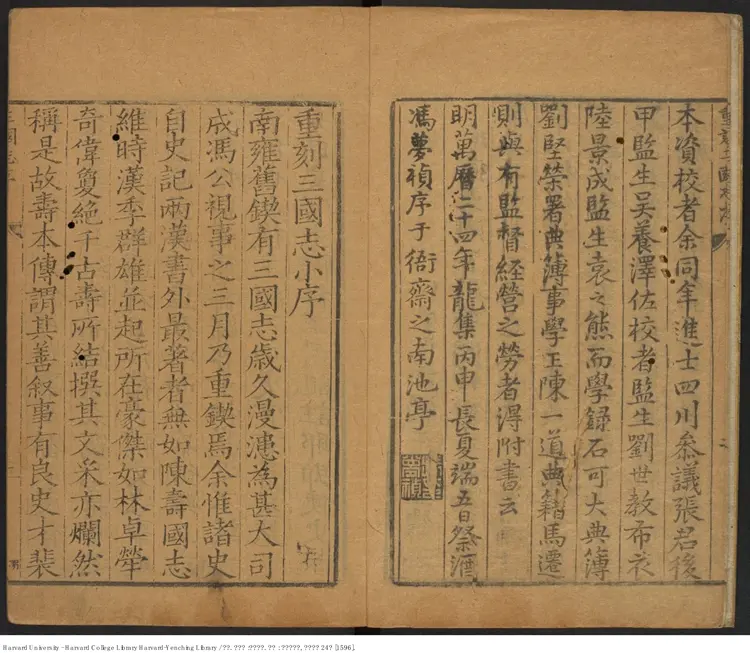 本資校者余同年進士四川叅議張君後
甲監生吴養澤佐校者監生劉世教布衣
陸景成監生袁之熊而學録石可大典簿
劉堅榮署典簿事學正陳一道典籍馬遷
則與有監督經營之勞者得附書云
明萬曆二十四年龍集丙申長夏端五日祭酒
馮夢禎序于衙齋之南池亭
重刻三國志小序
南雍舊鍥有三國志歲久漫漶為甚大司
成馮公視事之三月乃重鍥焉余惟諸史
自史記兩漢書外最著者無如陳壽國志
維時漢季群雄並起所在豪傑如林卓犖
奇偉敻絶千古壽所結撰其文采亦爛然
稱是故壽本傳謂其善叙事有良史才裴
Harvard University - Harvard College Library Harvard-Yenching Library / ??. ??? : ????. ?? : ?????, ???? 24? [1596].